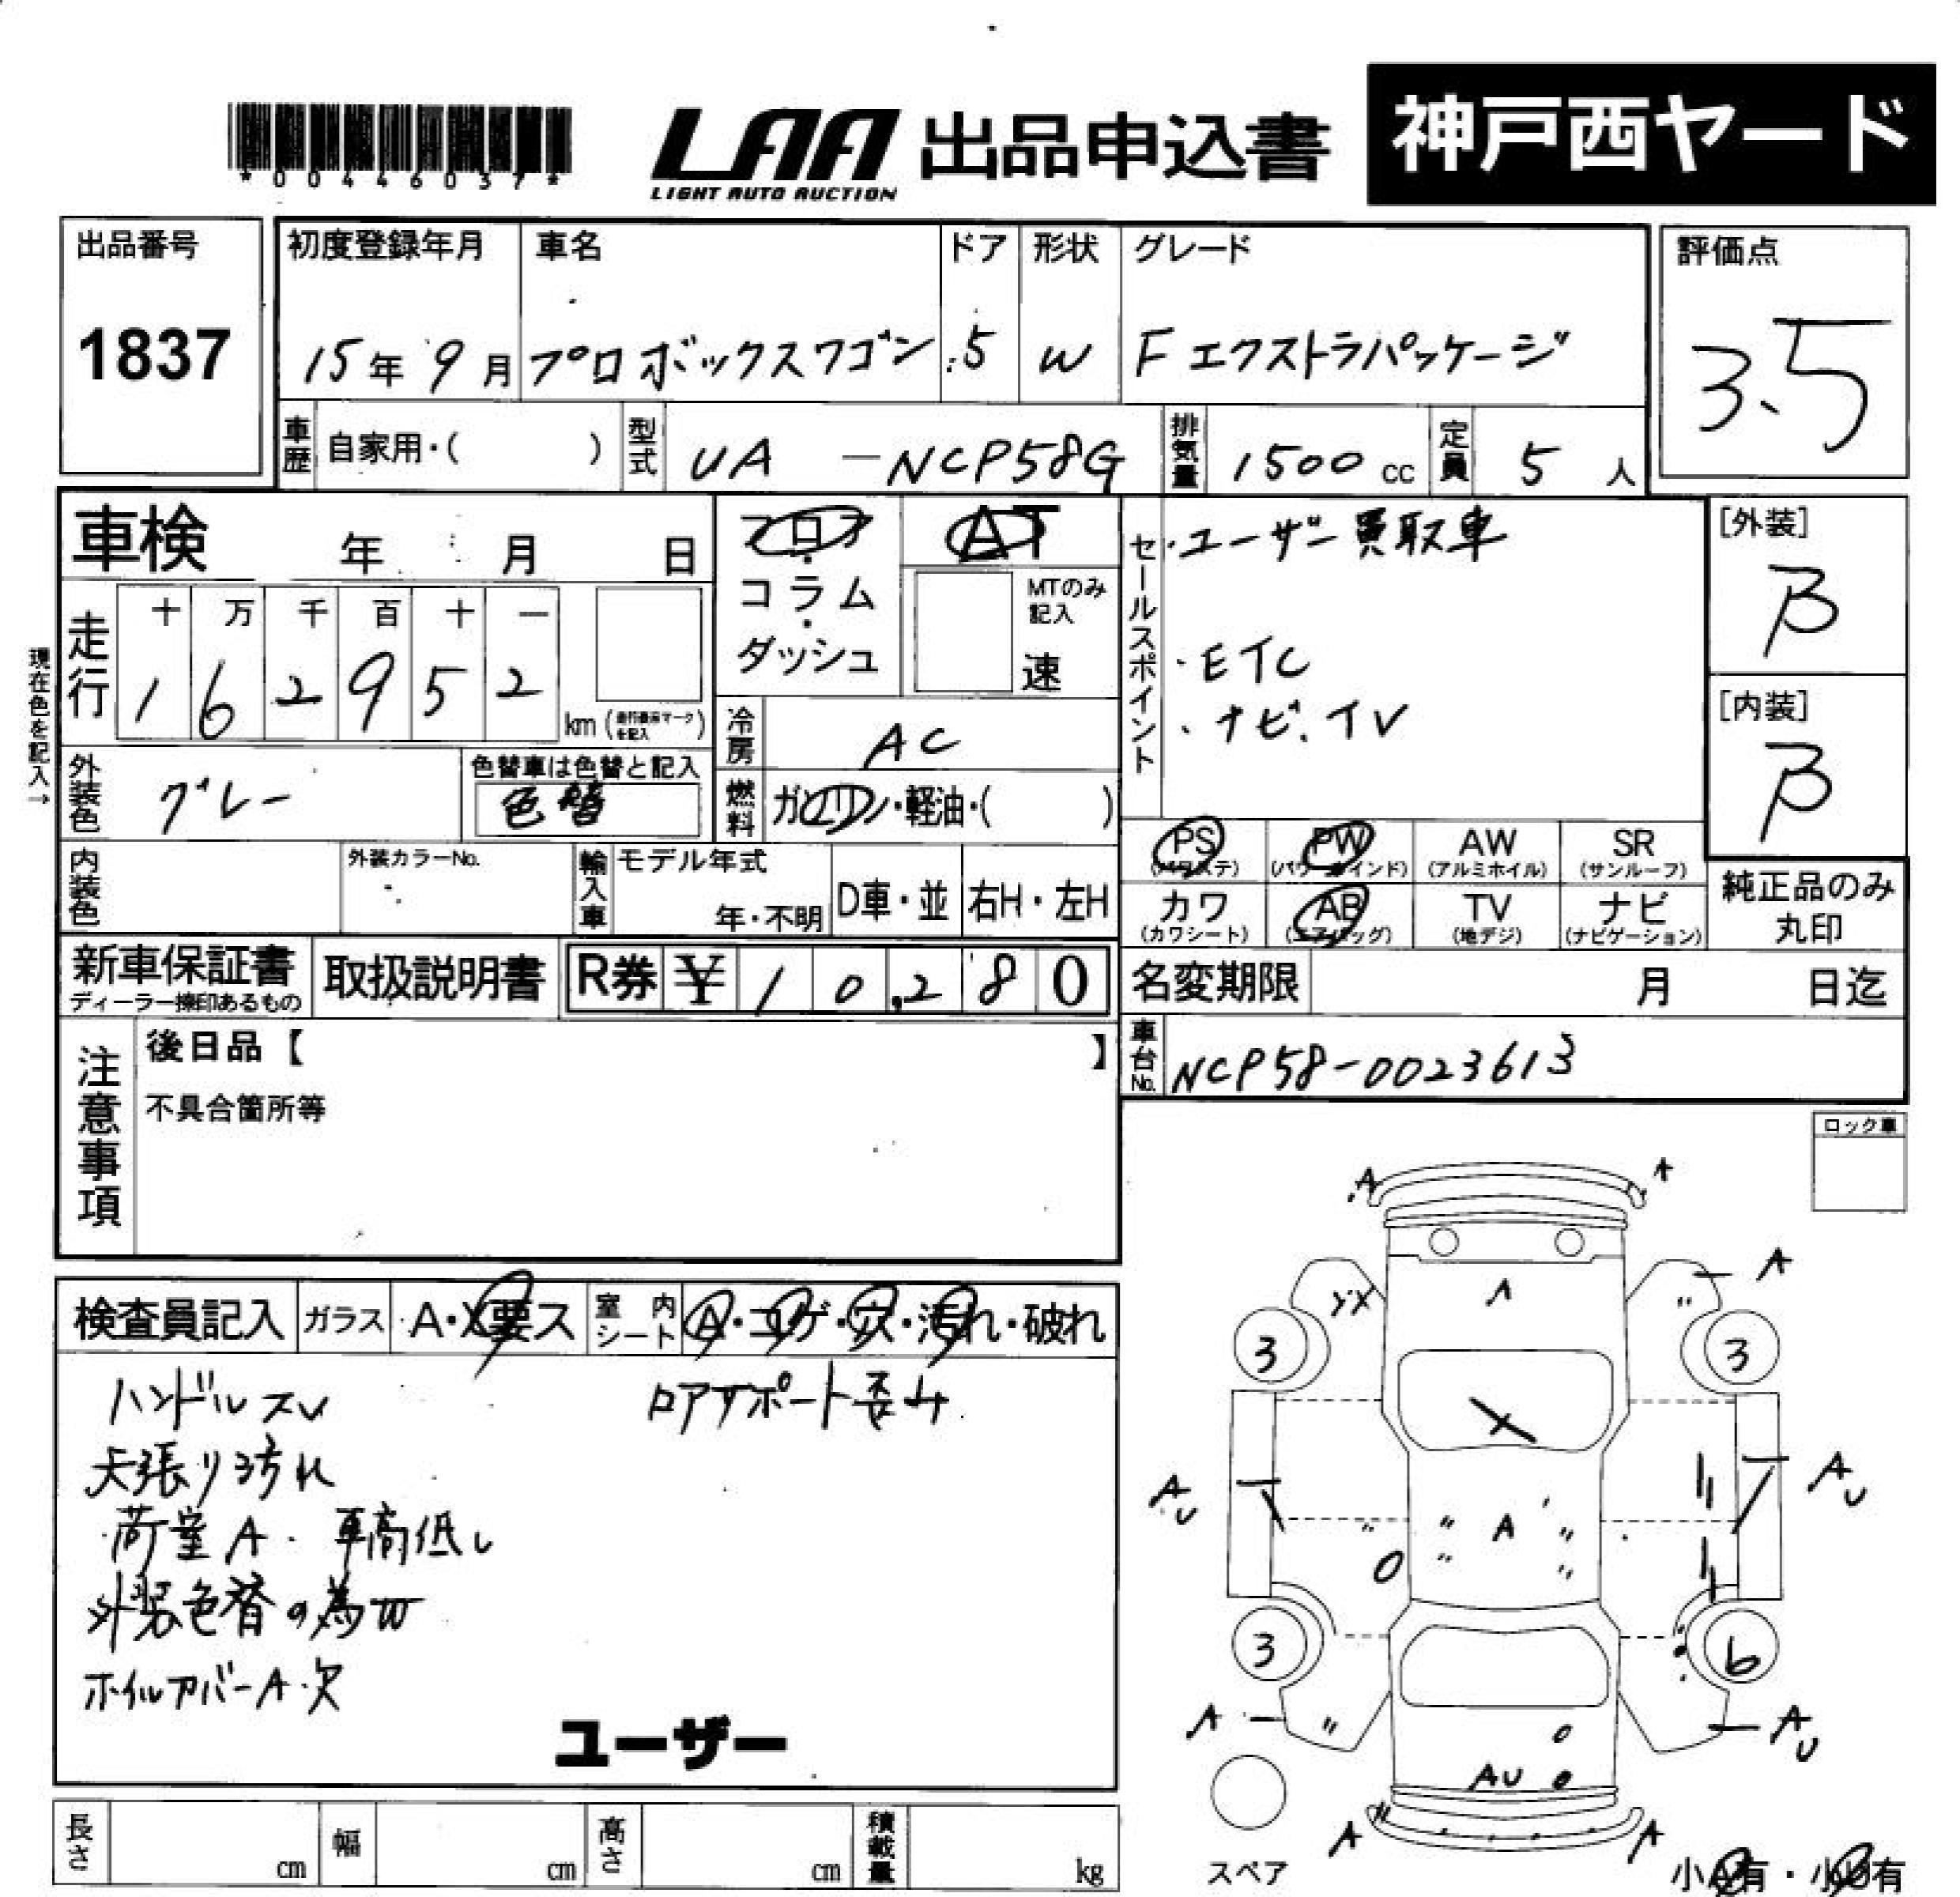 *00446037*
LAA 出品申込書 神戸西ヤード
LIGHT AUTO AUCTION
出品番号 初度登録年月 車名 ドア 形状 グレード 評価点
1837 15年 9月 プロボックスワゴン 5 W F エクストラパッケージ 3.5
車歴 自家用・( ) 型式 UA -NCP58G 排気量 1500 cc 定員 5 人
車検 年 月 日 フロア・コラム・ダッシュ AT
MTのみ記入 速
現在色を記入→
走行 十 万 千 百 十 一
1 6 2 9 5 2 km
冷房 AC
外装色 グレー 色替車は色替と記入
色替
燃料 ガソリン・軽油・( )
セールスポイント ・ユーザー買取車
・ETC
・ナビ.TV
[外装]
B
[内装]
B
PS PW AW SR
(パワステ) (パワーウインド) (アルミホイル) (サンルーフ)
カワ AB TV ナビ
(カワシート) (エアバッグ) (地デジ) (ナビゲーション)
純正品のみ
丸印
内装色 外装カラーNo. 輸入車 モデル年式
年・不明 D車・並 右H・左H
新車保証書 取扱説明書 R券 ¥ 1 0,2 8 0
ディーラー捺印あるもの
名変期限 月 日迄
車台No. NCP58-0023613
注意事項 後日品【 】
不具合箇所等
ロック車
検査員記入 ガラス A・X要ス 室内シート A・コゲ・穴・汚れ・破れ
ハンドルスレ ロアサポート歪み
天張り汚れ
荷室A. 車高低し
外装色替の為W
ホイルカバーA.欠
ユーザー
A A
A
A
XX 〃
3 3
X
A
U
A
U
〃 〃 A 〃
〃 〃
3 6
A 〃 A
U
AU
A A
スペア
小A有・小U有
長さ cm 幅 cm 高さ cm 積載量 kg